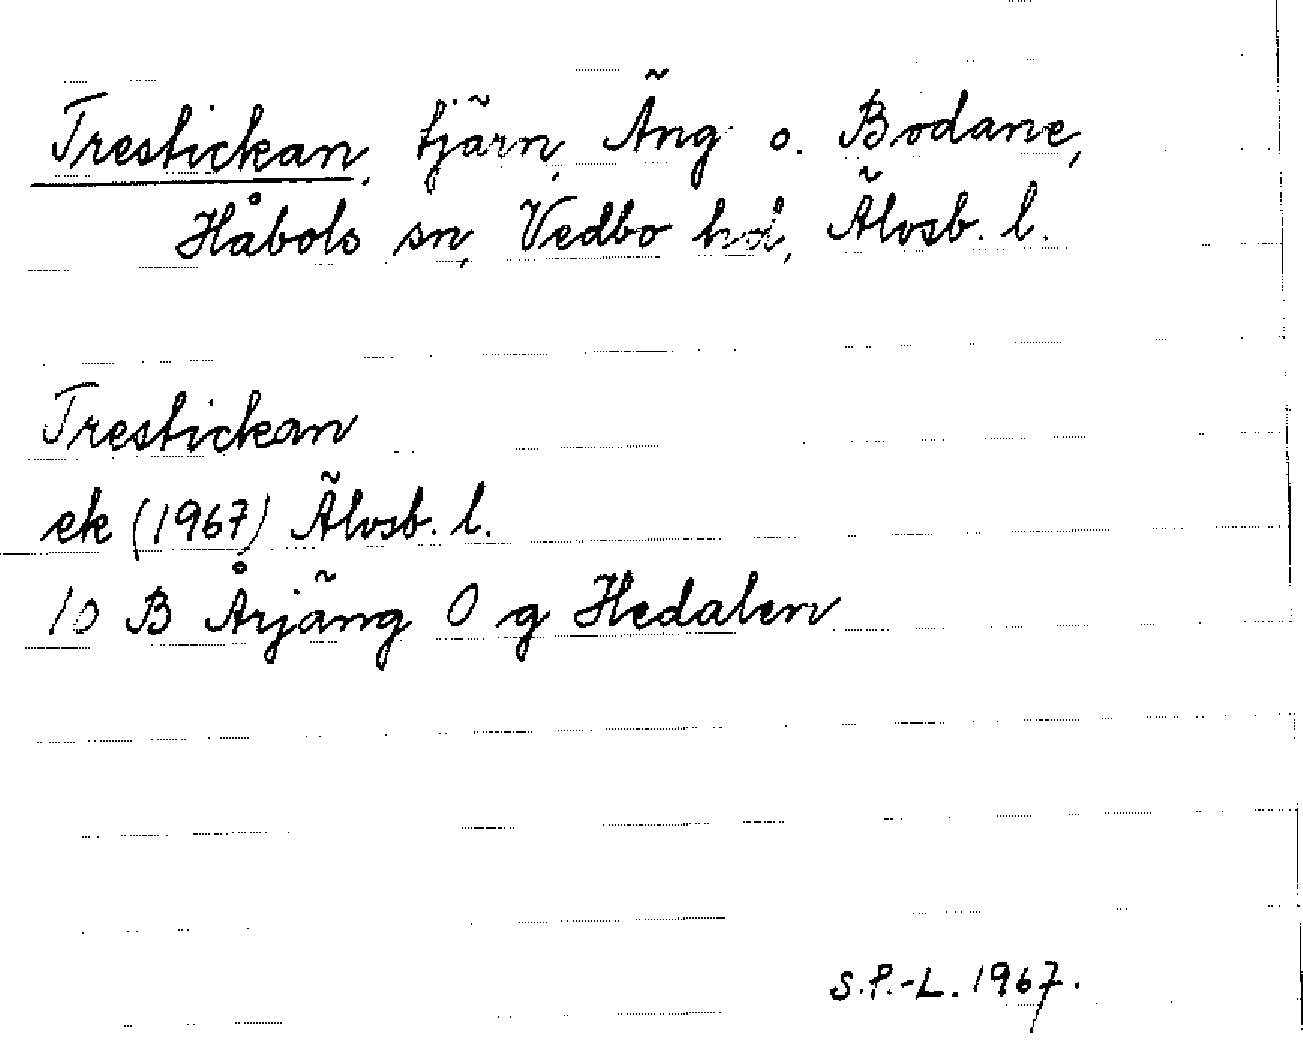 Trestickan, tjärn, Äng o. Bodane,
Håbols sn, Vedbo hd, Älvsb. l.
Trestickan
ek (1967) Älvsb. l.
10 B Årjäng 0 g Hedalen
S.P.-L. 1967.